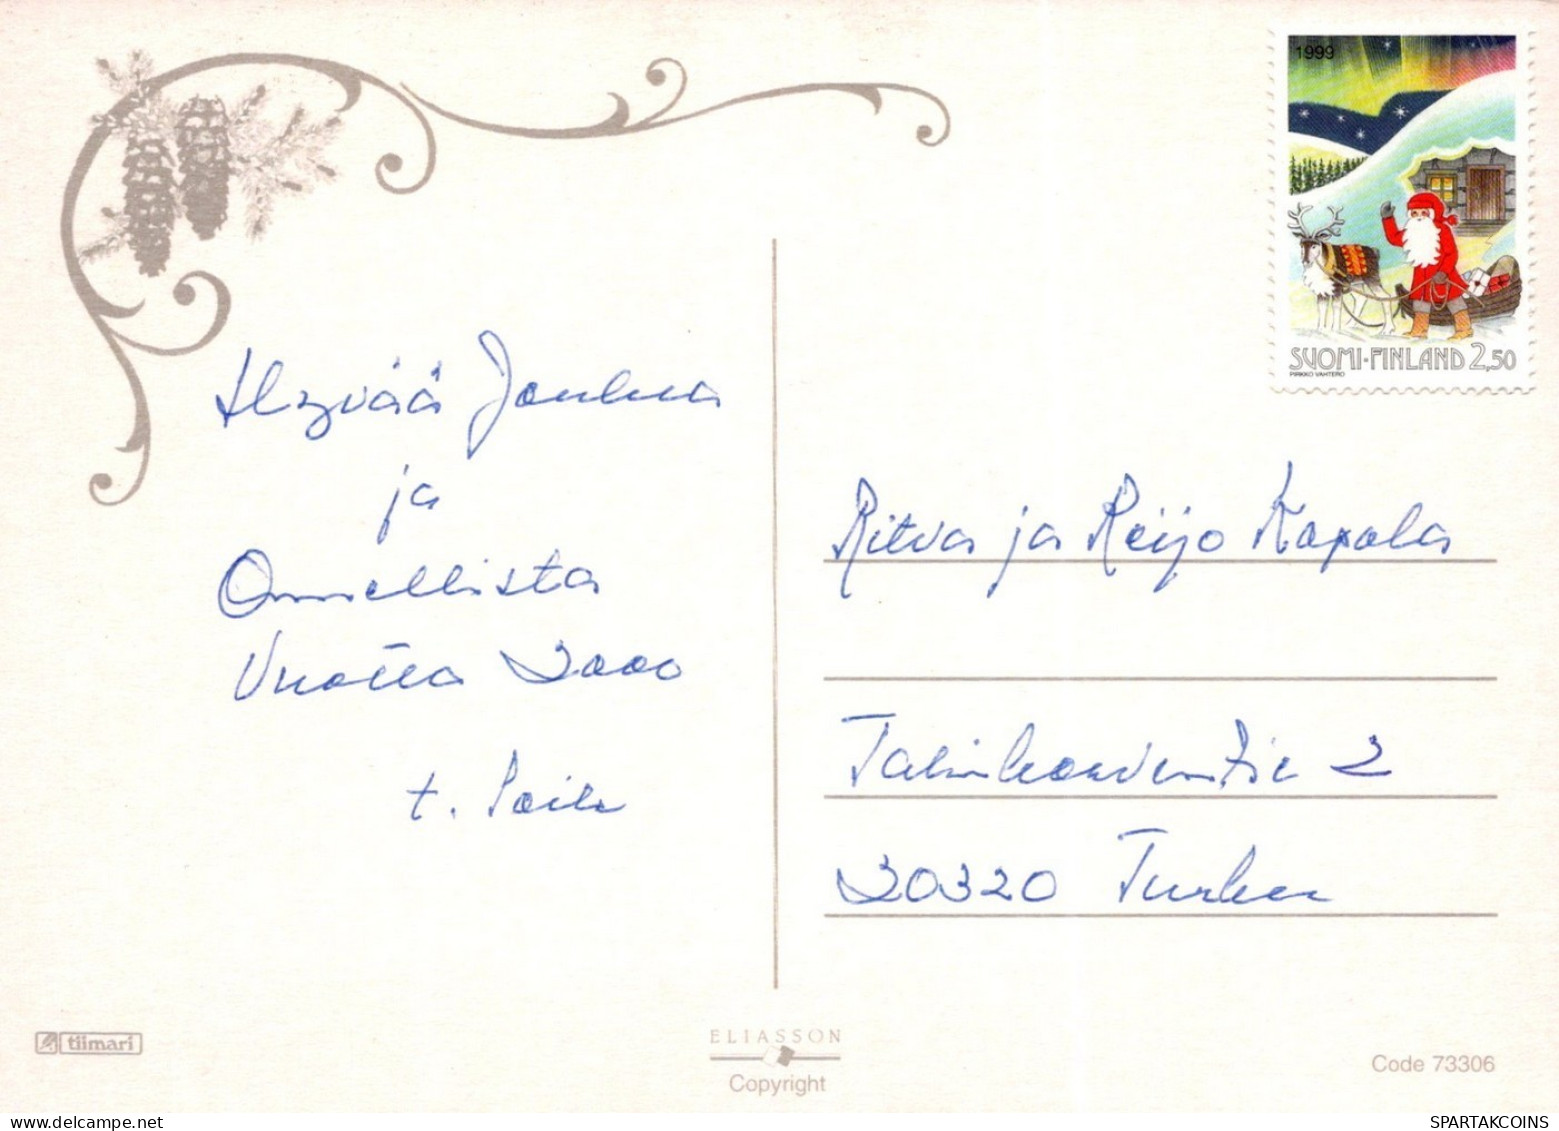 1999
SUOMI-FINLAND 2,50
PIRKKO VAHTERO
Hyvää Joulua
ja
Onnellista
Vuotta 2000
t. Soile
Ritva ja Reijo Kapala
2
20320 Turku
tiimari
ELIASSON
Copyright
Code 73306
SPARTAKCOINS